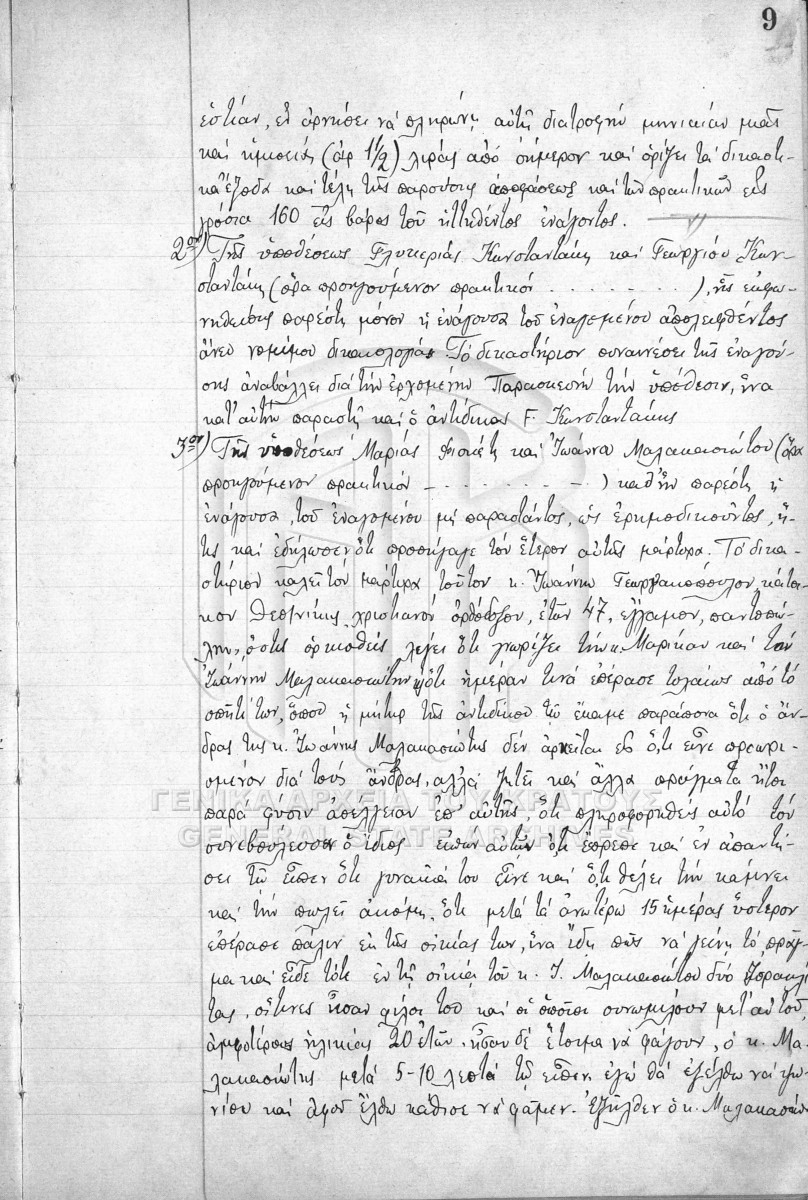 9
ἑστίαν, ἐν ἀρνήσει νὰ πληρώνῃ αὐτῇ διατροφὴν μηνιαίαν μιᾶς
καὶ ἡμισείας (ἀρ 1 1/2) λίρας ἀπὸ σήμερον καὶ ὁρίζει τὰ δικαστι-
κὰ ἔξοδα καὶ τέλη τῆς παρούσης ἀποφάσεως καὶ τῶν πρακτικῶν εἰς
γρόσια 160 εἰς βάρος τοῦ ἡττηθέντος ἐνάγοντος.
2ον) Τῆς ὑποθέσεως Γλυκερίας Κωνσταντάκη καὶ Γεωργίου Κων-
σταντάκη (ὅρα προηγούμενον πρακτικόν . . . . . . . ), ἧς ἐκφω-
νηθείσης παρέστη μόνον ἡ ἐνάγουσα τοῦ ἐναγομένου ἀπολειφθέντος
ἄνευ νομίμου δικαιολογίας. Τὸ δικαστήριον συναινέσει τῆς ἐναγού-
σης ἀναβάλλει διὰ τὴν ἐρχομένην Παρασκευὴν τὴν ὑπόθεσιν, ἵνα
κατ' αὐτὴν παραστῇ καὶ ὁ ἀντίδικος Γ. Κωνσταντάκης
3ον) Τῆς ὑποθέσεως Μαρίας καὶ Ἰωάννου Μαλακασιώτου (ὅρα
προηγούμενον πρακτικὸν - . . . . . . - ) καθ' ἣν παρέστη ἡ
ἐνάγουσα, τοῦ ἐναγομένου μὴ παραστάντος, ὡς ἐρημοδικοῦντος, ἥ-
τις καὶ ἐδήλωσεν ὅτι προσήγαγε τὸν ἕτερον αὐτῆς μάρτυρα. Τὸ δικα-
στήριον καλεῖ τὸν μάρτυρα τοῦτον κ. Ἰωάννην Γεωργακόπουλον, κάτοι-
κον Θεσ/νίκης, χριστιανὸν ὀρθόδοξον, ἐτῶν 47, ἔγγαμον, παντοπώ-
λην, ὅστις ὁρκισθεὶς λέγει ὅτι γνωρίζει τὴν κ. Μαρίκαν καὶ τὸν
Ἰωάννην Μαλακασιώτην, ὅτι ἡμέραν τινὰ ἐπέρασε τυχαίως ἀπὸ τὸ
σπῆτί των, ὅπου ἡ μήτηρ τῆς ἀντιδίκου τῷ ἔκαμε παράπονα ὅτι ὁ ἄν-
δρας της κ. Ἰωάννης Μαλακασιώτης δὲν ἀρκεῖται εἰς ὅ,τι εἶνε προωρι-
σμένον διὰ τοὺς ἄνδρας, ἀλλὰ ζητεῖ καὶ ἄλλα πράγματα ἤτοι
παρὰ φύσιν ἀσέλγειαν ἐπ' αὐτῆς, ὅτι πληροφορηθεὶς αὐτὸ τὸν
συνεβούλευσεν ὁ ἴδιος εἰπὼν αὐτῷ ὅ,τι ἔπρεπε καὶ ἐν ἀπαντή-
σει τῷ εἶπεν ὅτι γυναῖκά του εἶνε καὶ ὅ,τι θέλει τὴν κάμνει
καὶ τὴν πωλεῖ ἀκόμη, ὅτι μετὰ τὰ ἀνωτέρω 15 ἡμέρας ὕστερον
ἐπέρασε πάλιν ἐκ τῆς οἰκίας των, ἵνα ἴδῃ πῶς νὰ γείνῃ τὸ πρᾶγ-
μα καὶ εἶδε τότε ἐν τῇ οἰκίᾳ τοῦ κ. Ἰ. Μαλακασιώτου δύο Ἰσραηλί-
τας, οἵτινες ἦσαν φίλοι του καὶ οἱ ὁποῖοι συνωμίλουν μετ' αὐτοῦ,
ἀμφοτέρους ἡλικίας 20 ἐτῶν. ἦσαν δὲ ἕτοιμα νὰ φάγουν, ὁ κ. Μα-
λακασιώτης μετὰ 5-10 λεπτὰ τῷ εἶπεν ἐγὼ θὰ ἐξέλθω νὰ ψω-
νίσω καὶ ἀφοῦ ἔλθω κάθισε νὰ φᾶμεν. Ἐξῆλθεν ὁ κ. Μαλακασιώ-
ΓΕΝΙΚΑ ΑΡΧΕΙΑ ΤΟΥ ΚΡΑΤΟΥΣ
GENERAL STATE ARCHIVES